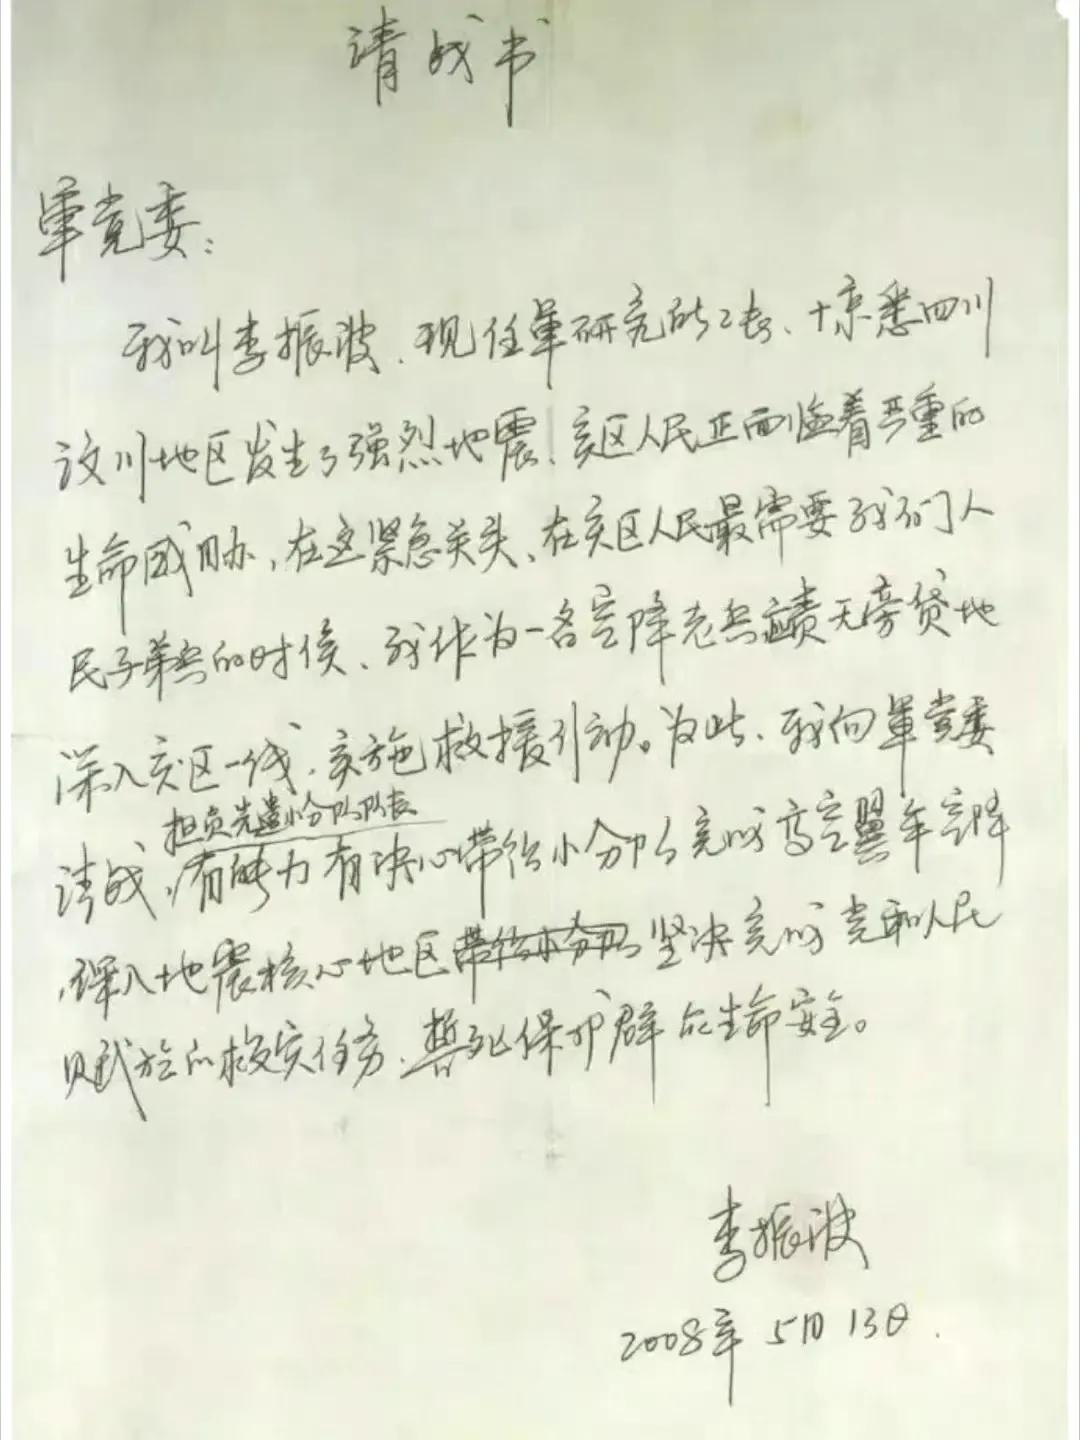 请战书
军党委：
我叫李振波、现任军研究所所长、惊悉四川
汶川地区发生了强烈地震、灾区人民正面临着严重的
生命威胁，在这紧急关头、在灾区人民最需要我们人
民子弟兵的时候、我作为一名空降老兵责无旁贷地
深入灾区一线，实施救援行动。为此、我向军党委
担负先遣小分队队长
请战，有能力有决心带领小分队完成高空翼伞空降
，深入地震核心地区带领小分队坚决完成党和人民
赋于的救灾任务、誓死保护群众生命安全。
李振波
2008年 5月13日.